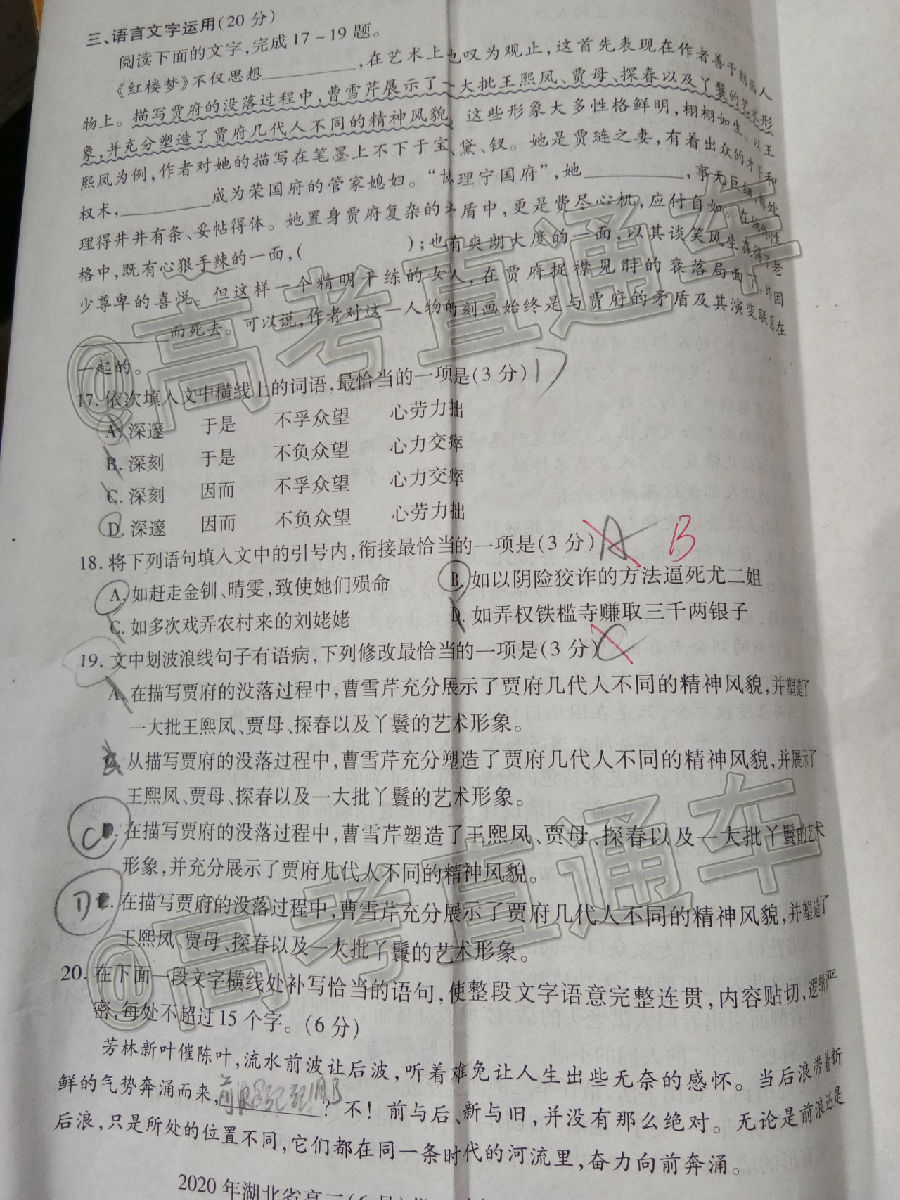 三、语言文字运用(20分)
阅读下面的文字,完成17~19题。
《红楼梦》不仅思想________,在艺术上也叹为观止,这首先表现在作者善于刻画人
物上。描写贾府的没落过程中,曹雪芹展示了一大批王熙凤、贾母、探春以及丫鬟的艺术形
象,并充分塑造了贾府几代人不同的精神风貌。这些形象大多性格鲜明,栩栩如生。以王
熙凤为例,作者对她的描写在笔墨上不下于宝、黛、钗。她是贾琏之妻,有着出众的才干和
权术,________成为荣国府的管家媳妇。“协理宁国府”,她________,事无巨细,
理得井井有条、妥帖得体。她置身贾府复杂的矛盾中,更是费尽心机,应付自如。在
格中,既有心狠手辣的一面,( );也有爽朗大度的一面,以其谈笑风生赢得了老
少尊卑的喜悦。但这样一个精明干练的女人,在贾府捉襟见肘的衰落局面下,
________而死去。可以说,作者对这一人物的刻画始终是与贾府的矛盾及其演变联系在
一起的。
17. 依次填入文中横线上的词语,最恰当的一项是(3分)
A. 深邃 于是 不孚众望 心劳力拙
B. 深刻 于是 不负众望 心力交瘁
C. 深刻 因而 不孚众望 心力交瘁
D. 深邃 因而 不负众望 心劳力拙
18. 将下列语句填入文中的引号内,衔接最恰当的一项是(3分) A B
A. 如赶走金钏、晴雯,致使她们殒命 B. 如以阴险狡诈的方法逼死尤二姐
C. 如多次戏弄农村来的刘姥姥 D. 如弄权铁槛寺赚取三千两银子
19. 文中划波浪线句子有语病,下列修改最恰当的一项是(3分) C
A. 在描写贾府的没落过程中,曹雪芹充分展示了贾府几代人不同的精神风貌,并塑造了
一大批王熙凤、贾母、探春以及丫鬟的艺术形象。
B. 从描写贾府的没落过程中,曹雪芹充分塑造了贾府几代人不同的精神风貌,并展示了
王熙凤、贾母、探春以及一大批丫鬟的艺术形象。
C. 在描写贾府的没落过程中,曹雪芹塑造了王熙凤、贾母、探春以及一大批丫鬟的艺术
形象,并充分展示了贾府几代人不同的精神风貌。
D. 在描写贾府的没落过程中,曹雪芹充分展示了贾府几代人不同的精神风貌,并塑造了
王熙凤、贾母、探春以及一大批丫鬟的艺术形象。
20. 在下面一段文字横线处补写恰当的语句,使整段文字语意完整连贯,内容贴切,逻辑严
密,每处不超过15个字。(6分)
芳林新叶催陈叶,流水前波让后波,听着难免让人生出些无奈的感怀。当后浪带着新
鲜的气势奔涌而来,________?不!前与后、新与旧,并没有那么绝对。无论是前浪还是
后浪,只是所处的位置不同,它们都在同一条时代的河流里,奋力向前奔涌。
2020年湖北省高二(6月)
@高考直通车
@高考直通车